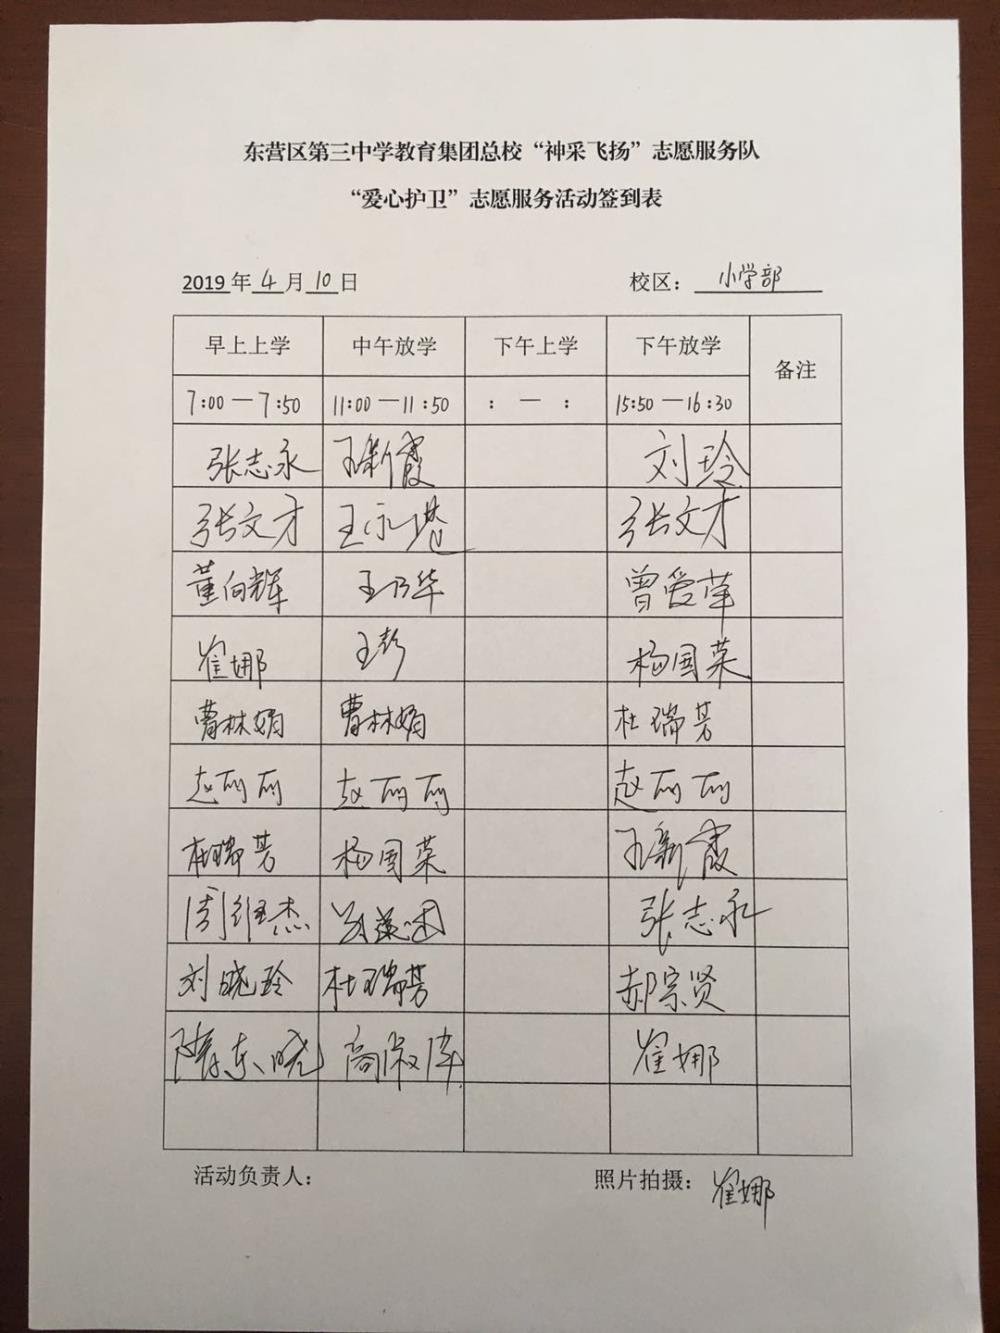 东营区第三中学教育集团总校“神采飞扬”志愿服务队
“爱心护卫”志愿服务活动签到表
2019年4月10日 校区：小学部
早上上学 中午放学 下午上学 下午放学 备注
7:00—7:50 11:00—11:50 ：—： 15:50—16:30
张志永 王新霞 刘玲
张文才 王永港 张文才
董向辉 王乃华 曾爱萍
崔娜 王彭 杨国菜
曹林娟 曹林娟 杜瑞芳
赵丽丽 赵丽丽 赵丽丽
杜瑞芳 杨国菜 王新霞
周维杰 张志永
刘晓玲 杜瑞芳 郝宗贤
隋东晓 崔娜
活动负责人： 照片拍摄：崔娜